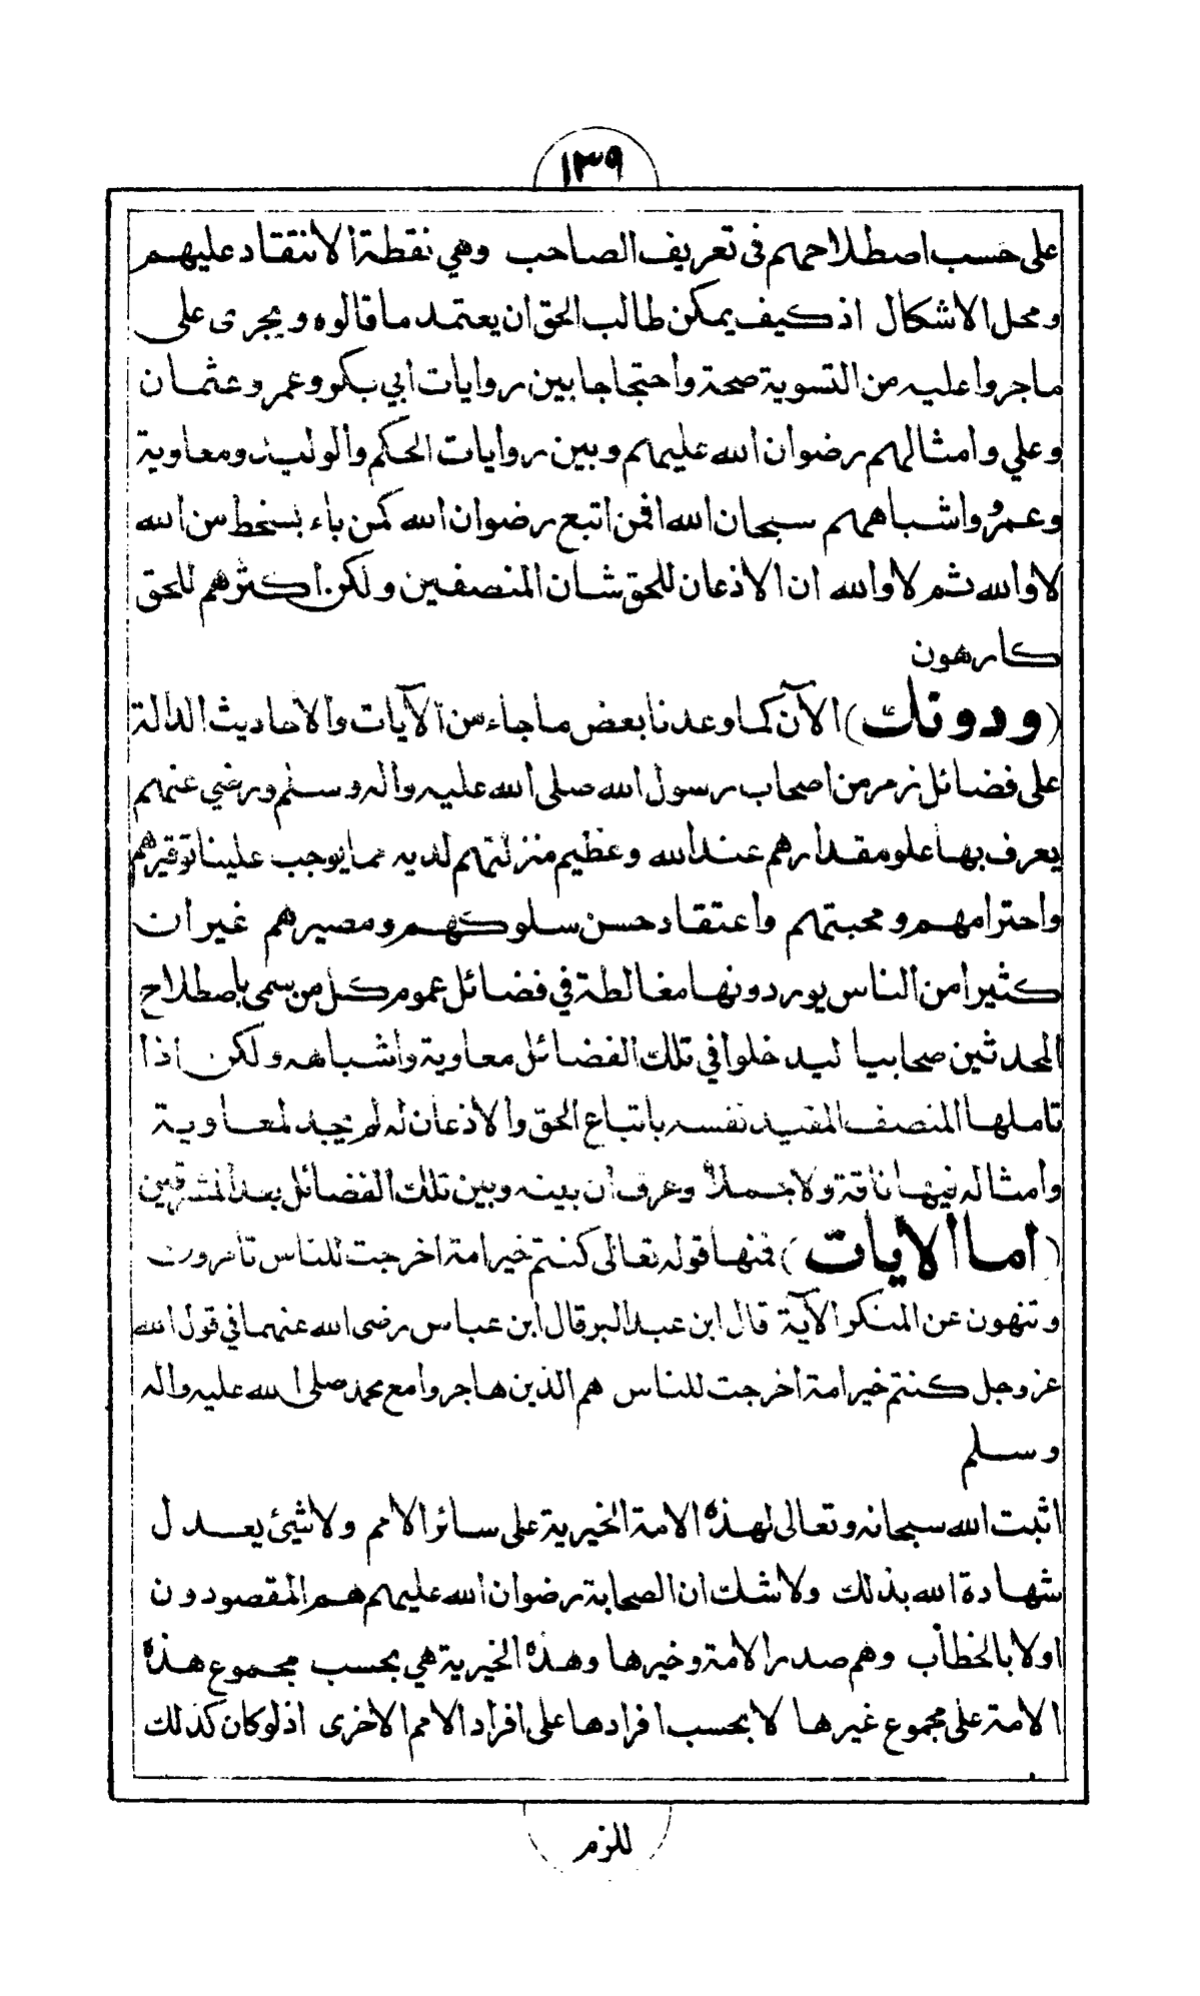 ١٣٩
على حسب اصطلاحهم فى تعريف الصاحب وهي نقطة الانتقاد عليهم
ومحل الاشكال اذ كيف يمكن طالب الحق ان يعتمد ما قالوه ويجرى على
ما جروا عليه من التسوية صحة واحتجاجا بين روايات ابي بكر وعمر وعثمان
وعلي وامثالهم رضوان الله عليهم وبين روايات الحكم والوليد ومعاوية
وعمرو واشباههم سبحان الله افمن اتبع رضوان الله كمن باء بسخط من الله
لا والله ثم لا والله ان الاذعان للحق شان المنصفين ولكن اكثرهم للحق
كارهون
(ودونك) الآن كما وعدنا بعض ما جاء من الآيات والاحاديث الدالة
على فضائل زمر من اصحاب رسول الله صلى الله عليه واله وسلم ورضي عنهم
يعرف بها علو مقدارهم عند الله وعظيم منزلتهم لديه مما يوجب علينا توقيرهم
واحترامهم ومحبتهم واعتقاد حسن سلوكهم ومصيرهم غير ان
كثيرا من الناس يوردونها مغالطة في فضائل عموم كل من سمى باصطلاح
المحدثين صحابيا ليدخلوا في تلك الفضائل معاوية واشباهه ولكن اذا
تاملها المنصف المقيد نفسه باتباع الحق والاذعان له لم يجد لمعاوية
وامثاله فيها ناقة ولا جملا وعرف ان بينه وبين تلك الفضائل بعد المشرقين
(اما الايات) فمنها قوله تعالى كنتم خير امة اخرجت للناس تامرون
وتنهون عن المنكر الآية قال ابن عبد البر قال ابن عباس رضى الله عنهما في قول الله
عز وجل كنتم خير امة اخرجت للناس هم الذين هاجروا مع محمد صلى الله عليه واله
وسلم
اثبت الله سبحانه وتعالى لهذه الامة الخيرية على سائر الامم ولا شيئ يعدل
شهادة الله بذلك ولا شك ان الصحابة رضوان الله عليهم هم المقصودون
اولا بالخطاب وهم صدر الامة وخيرها وهذه الخيرية هي بحسب مجموع هذه
الامة على مجموع غيرها لا بحسب افرادها على افراد الامم الاخرى اذ لو كان كذلك
للزم